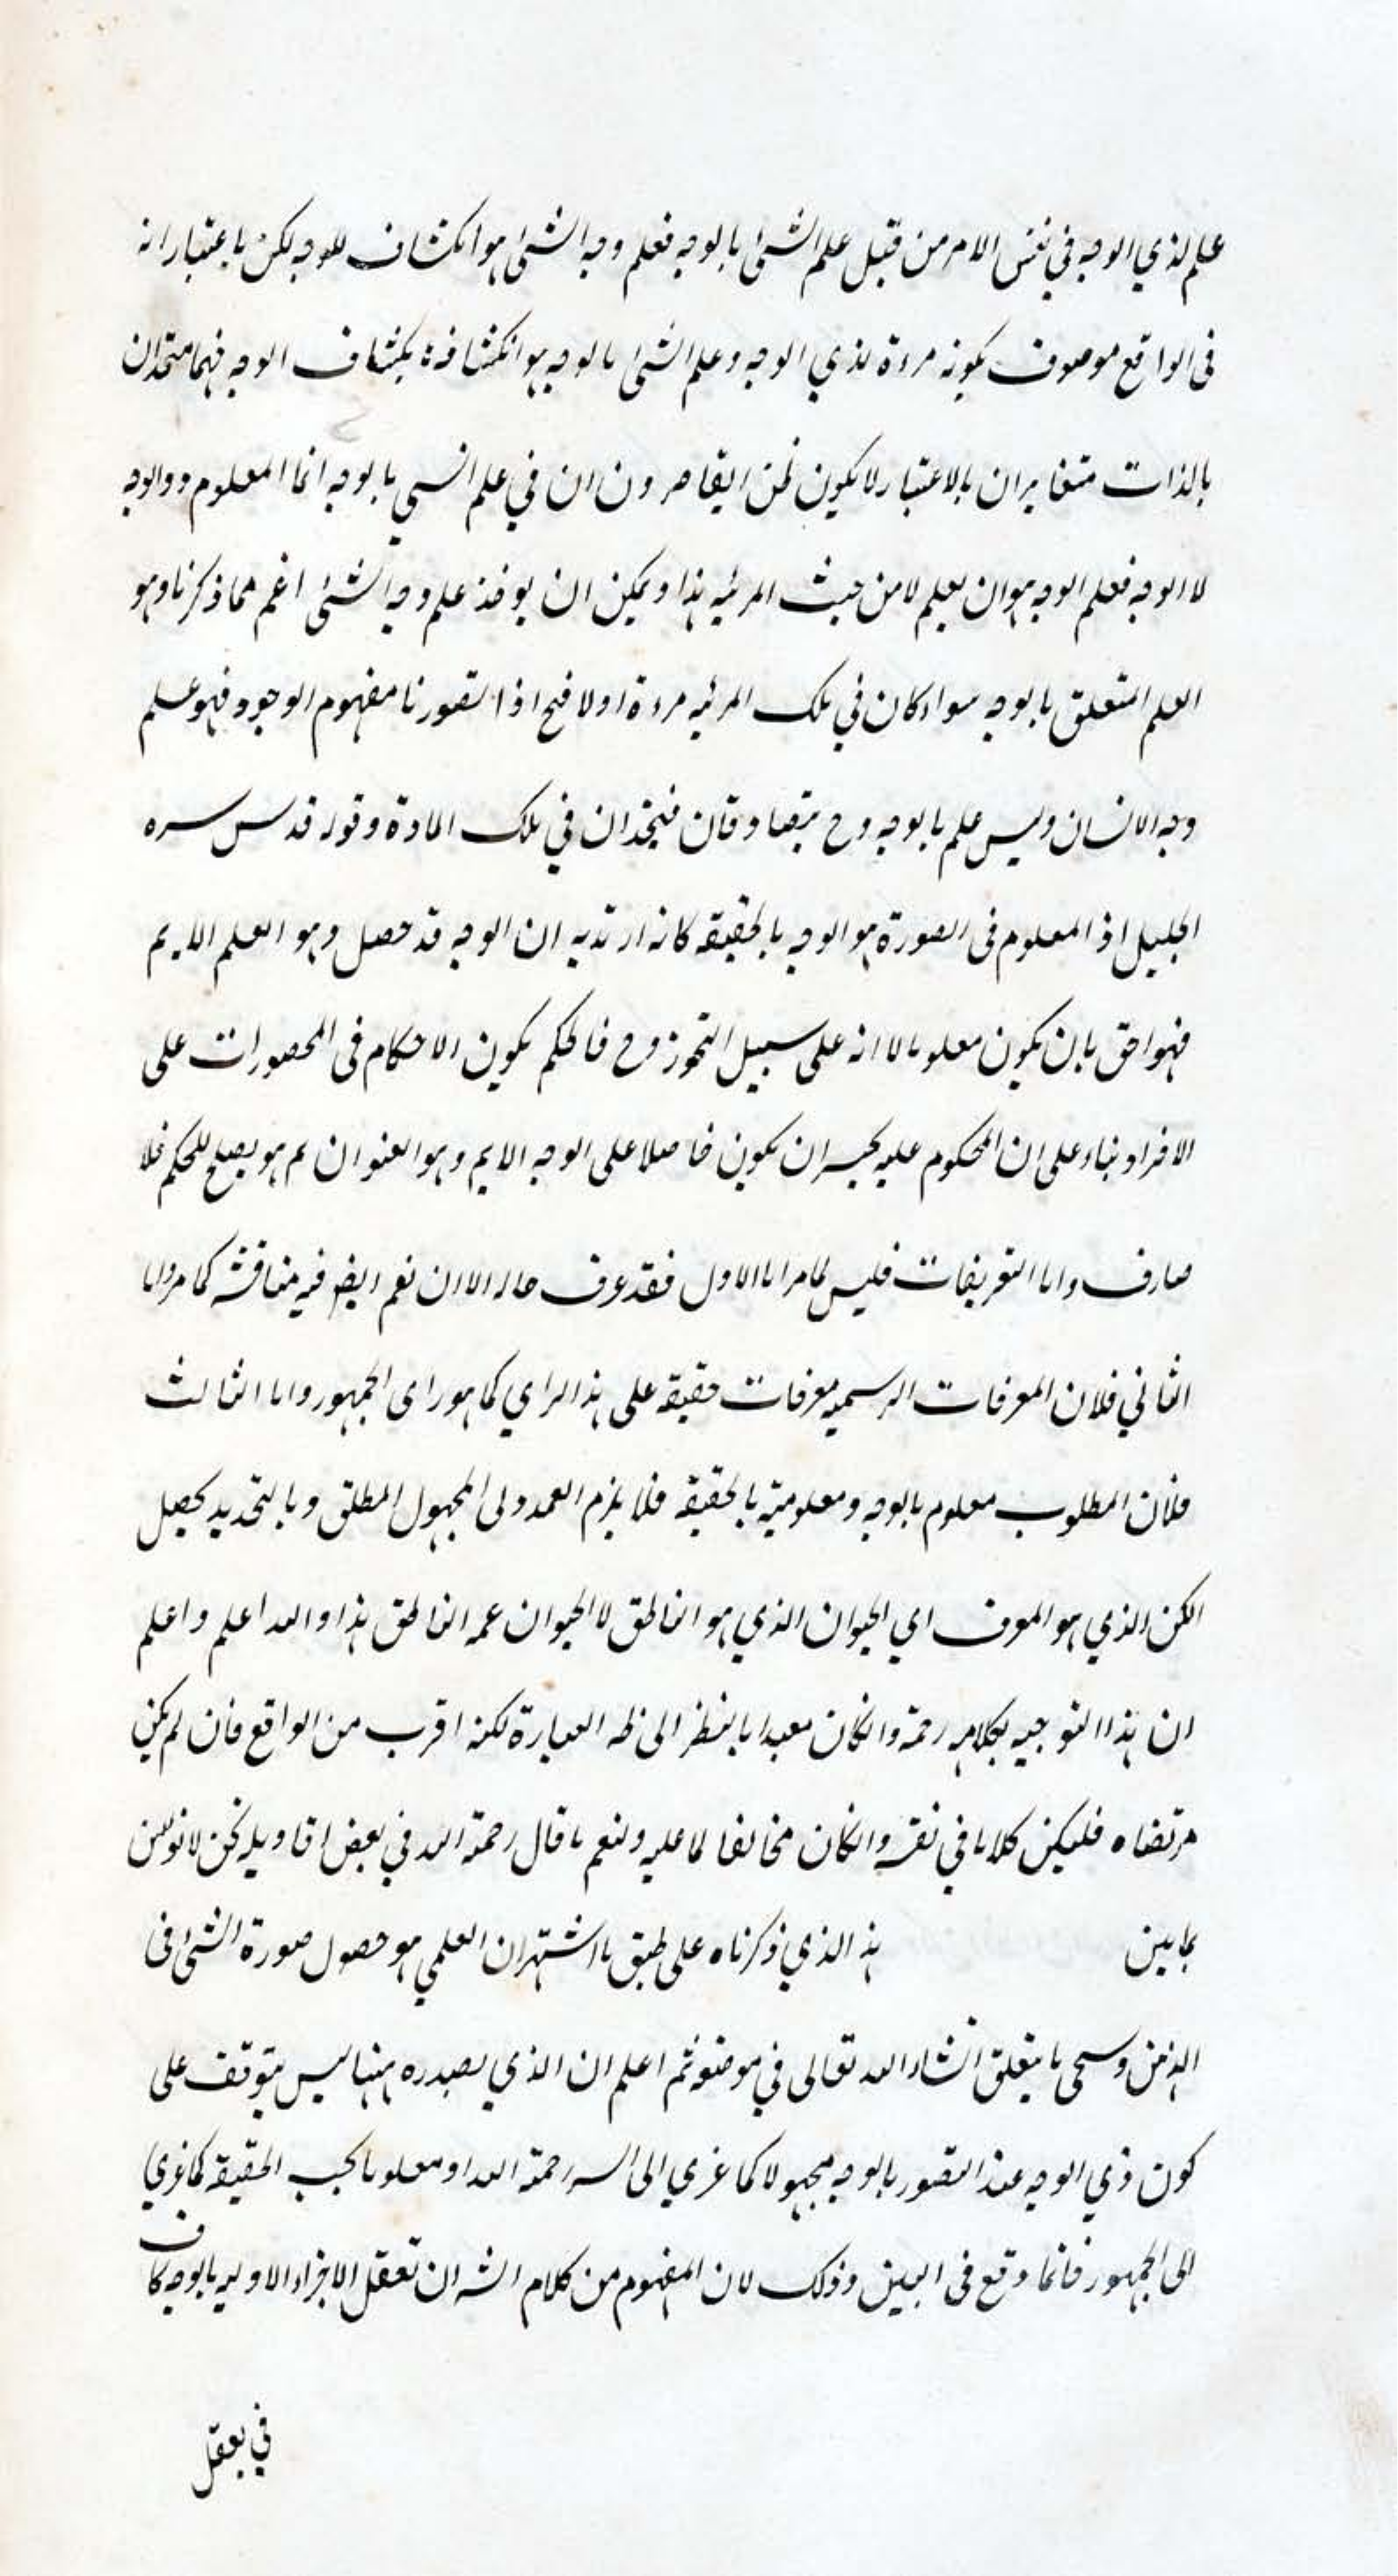 علم لذي الوجه في نفس الامر من قبل علم الشئ بالوجه فعلم وجه الشئ هو انكشاف للوجه لكن باعتبار انه
فى الواقع موصوف بكونه مرءة لذي الوجه وعلم الشئ بالوجه هو انكشافه بانكشاف الوجه فهما متحدان
بالذات متغايران بالاعتبار لا كمون ظن القاصرون ان في علم الشي بالوجه انما المعلوم ذو الوجه
لا الوجه فعلم الوجه هو ان يعلم لا من حيث المرئيه هذا ويمكن ان يوخذ علم وجه الشئ اعم مما ذكرنا وهو
العلم المتعلق بالوجه سواء كان في تلك المرئيه مرءة اولا فح اذا تصورنا مفهوم الوجود فهو علم
وجه الانسان وليس علم بالوجه وح يتصادقان فيتحدان في تلك المادة وقوله قدس سره
الجليل اذ المعلوم فى الصورة هو الوجه بالحقيقه كانه اراد به ان الوجه قد حصل وهو العلم الايم
فهو احق بان يكون معلوما لا انه على سبيل التجوز وح فالحكم بكون الاحكام فى المحصورات على
الافراد بناء على ان المحكوم عليه يجب ان يكون حاصلا على الوجه الايم وهو العنوان لم هو يصلح للحكم فلا
صارف واما التعريفات فليس كما مر اما الاول فقد عرف حاله الا ان نعم ايض فيه مناقشه كما مر واما
الثاني فلان المعرفات الرسميه معرفات حقيقه على هذا الراي كما هو راى الجمهور واما الثالث
فلان المطلوب معلوم بالوجه ومعلوميته بالحقيقه فلا يلزم العدو لى المجهول المطلق وبالتحديد يحصل
الكنه الذي هو المعرف اي الحيوان الذي هو الناطق لا الحيوان عمه الناطق هذا والله اعلم واعلم
ان هذا التوجيه لكلامه رحمة وان كان بعيدا بالنظر الى ظه العبارة لكنه اقرب من الواقع فان لم يكن
مرتضاه فليكن كلاما في نفسه وان كان مخالفا لما عليه ولنعم ما قال رحمة الله في بعض اقاويله نحن لا نومن
بما بين هذا الذي ذكرناه على طبق ما اشتهر ان العلمي هو حصول صورة الشئ فى
الذهن وسيجى ما يتعلق انشاء الله تعالى في موضعه ثم اعلم ان الذي بصدره ههنا ليس يتوقف على
كون ذي الوجه عند التصور بالوجه مجهولا كما عزي الى السه رحمة الله او معلوما بحسب الحقيقه كما عزي
الى الجمهور فانما وقع فى البين وذلك لان المفهوم من كلام الشه ان تعقل الاجزاء الاوليه بالوجه كاف
في تعقل